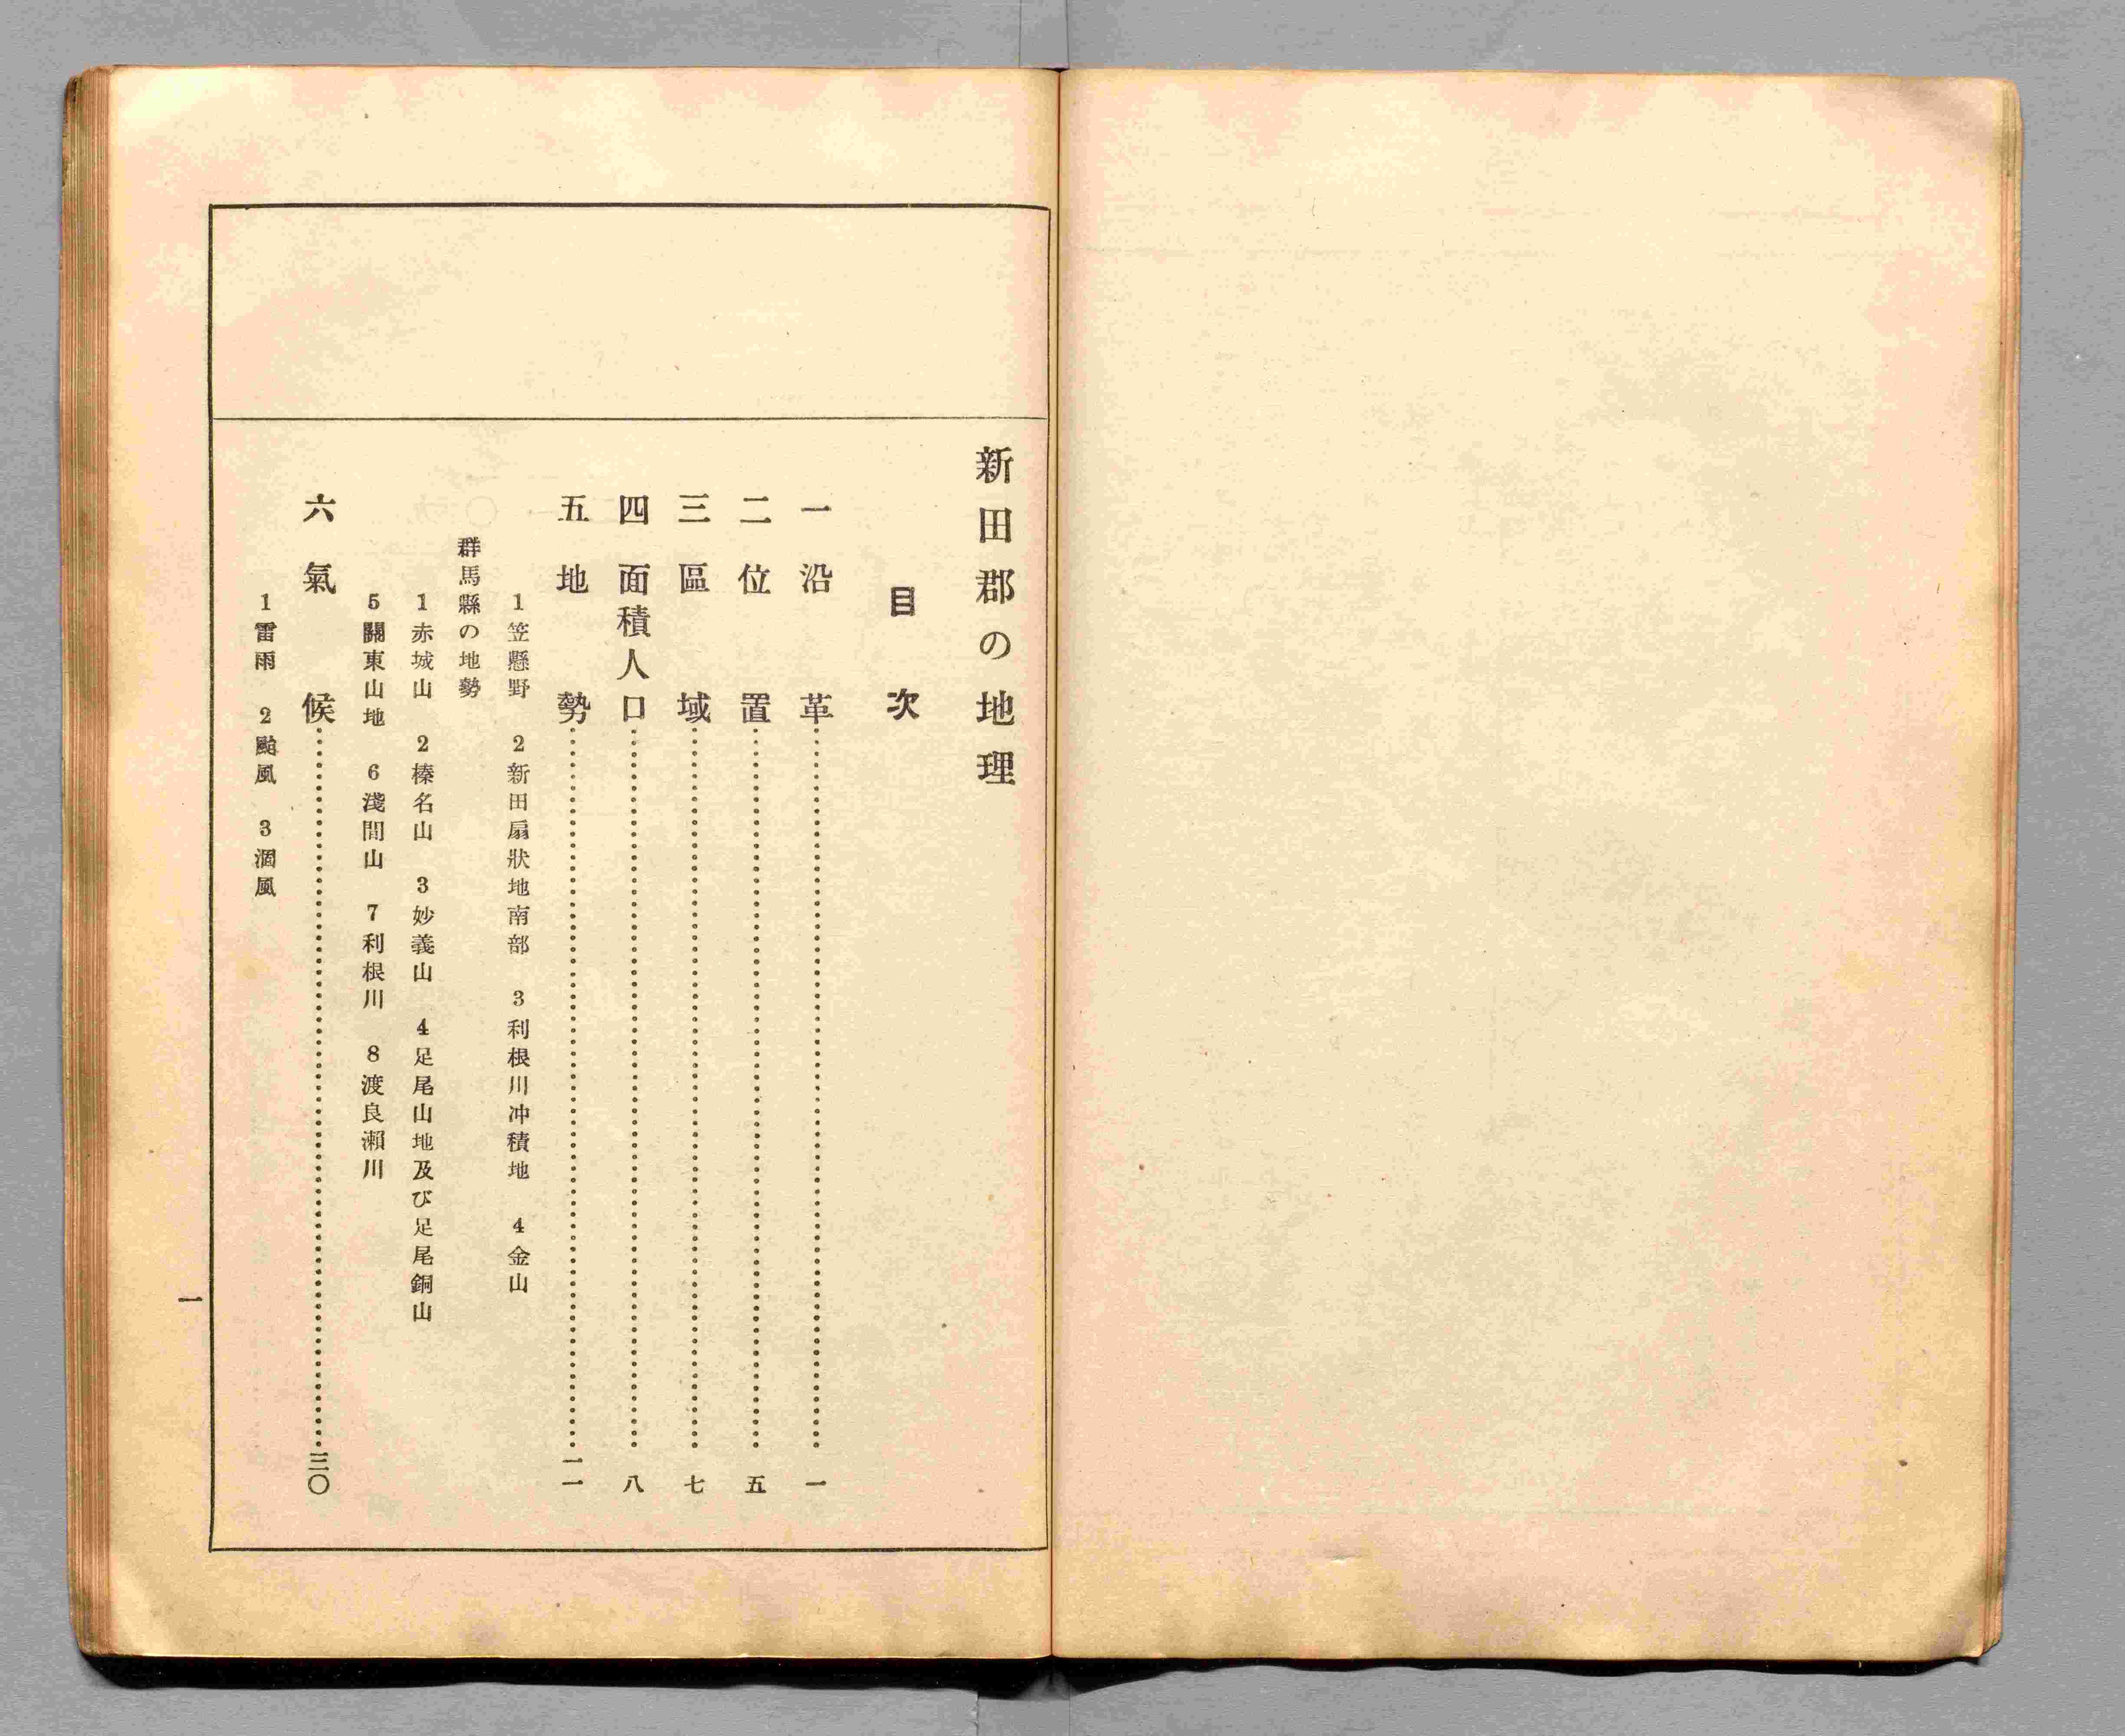 新田郡の地理
目次
一 沿革……一
二 位置……五
三 區域……七
四 面積人口……八
五 地勢……一一
1笠懸野 2新田扇狀地南部 3利根川冲積地 4金山
群馬縣の地勢
1赤城山 2榛名山 3妙義山 4足尾山地及び足尾銅山
5關東山地 6淺間山 7利根川 8渡良瀨川
六 氣候……三〇
1雷雨 2颱風 3凅風
一